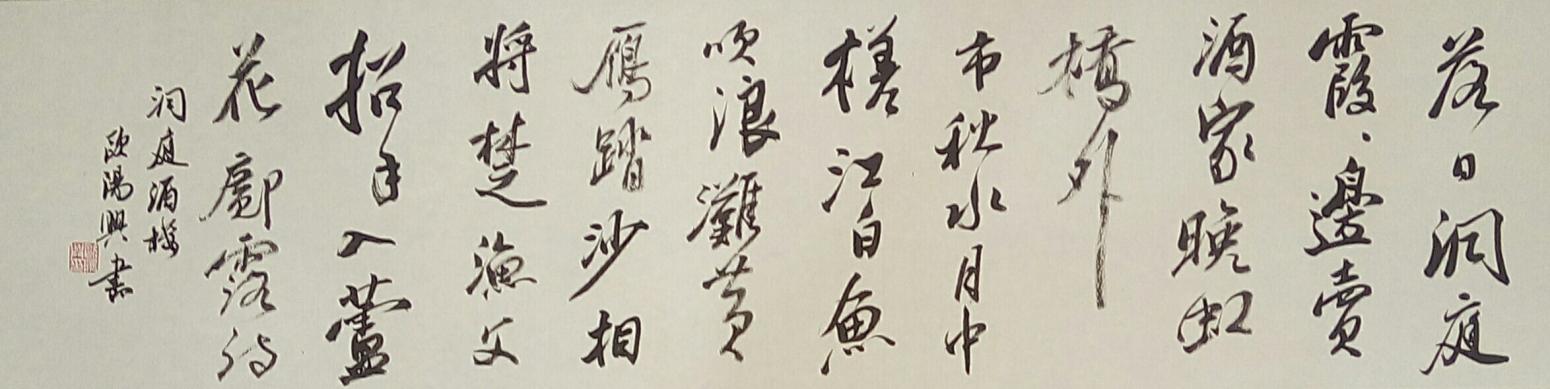 落日洞庭
霞々邊賣
酒家晚虹
橋外
市秋水月中
槎江白魚
吹浪灘黄
鴈踏沙相
將楚漁父
招手入蘆
花 鄺露詩
洞庭酒樓
歐陽興書